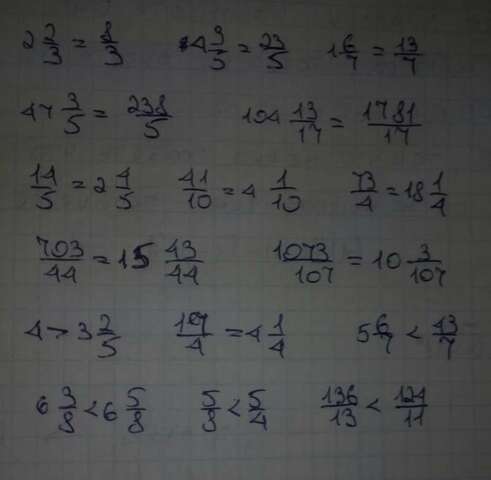 2 2/3 = 8/3 4 3/5 = 23/5 1 6/7 = 13/7
47 3/5 = 238/5 104 13/17 = 1781/17
14/5 = 2 4/5 41/10 = 4 1/10 73/4 = 18 1/4
703/44 = 15 43/44 1073/107 = 10 3/107
4 > 3 2/5 17/4 = 4 1/4 5 6/7 < 43/7
6 3/8 < 6 5/8 5/8 < 5/4 136/13 < 124/11